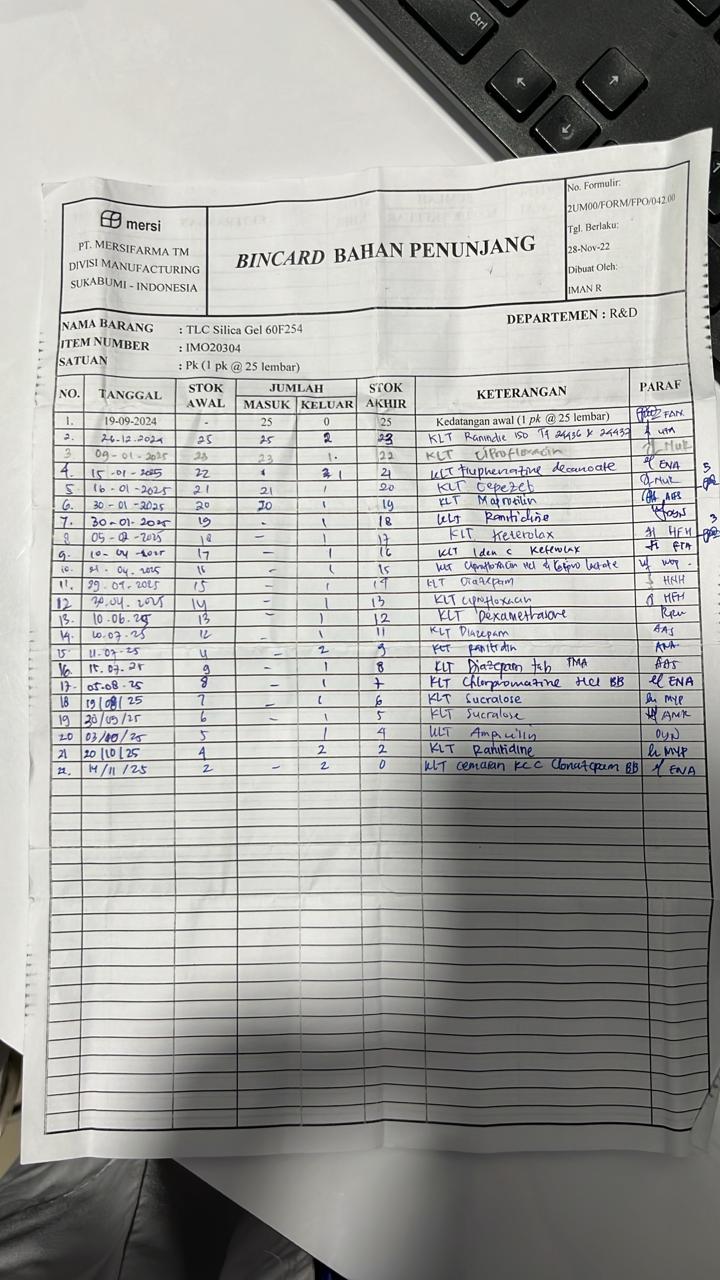 Ctrl
mersi
PT. MERSIFARMA TM
DIVISI MANUFACTURING
SUKABUMI - INDONESIA
BINCARD BAHAN PENUNJANG
No. Formulir:
2UM00/FORM/FPO/042.00
Tgl. Berlaku:
28-Nov-22
Dibuat Oleh:
IMAN R
NAMA BARANG : TLC Silica Gel 60F254
DEPARTEMEN : R&D
ITEM NUMBER : IMO20304
SATUAN : Pk (1 pk @ 25 lembar)
NO. TANGGAL STOK AWAL JUMLAH MASUK KELUAR STOK AKHIR KETERANGAN PARAF
1. 19-09-2024 - 25 0 25 Kedatangan awal (1 pk @ 25 lembar) FAN
2. 26-12-2024 25 25 2 23 KLT ISO 24436 & 24437
3. 09-01-2025 23 23 1. 22 KLT Ciprofloxacin MUR
4. 15-01-2025 22 1 21 KLT Fluphenazine decanoate ENA
5. 16-01-2025 21 21 1 20 KLT Cepezet MUR
6. 30-01-2025 20 20 1 19 KLT
7. 30-01-2025 19 - 1 18 KLT Ranitidine
8 05-02-2025 18 - 1 17 KLT Keterolax HFH
9. 17 - 1 16 KLT Iden C Keterolax
10. 21-04-2025 16 - 1 15 KLT Ciprofloxacin HCl & Lactate
11. 29.04.2025 15 - 1 14 KLT Diazepam HNH
12 30.04.2025 14 - 1 13 KLT Ciprofloxacin HFH
13. 10.06.25 13 - 1 12 KLT Dexamethasone
14. 10.07.25 12 1 11 KLT Diazepam AAS
15. 11.07.25 11 - 2 9 KLT Ranitidin
16. 15.07.25 9 - 1 8 KLT Diazepam tab TMA AAS
17. 05-08-25 8 - 1 7 KLT Chlorpromazine HCl BB ENA
18 19/08/25 7 - 1 6 KLT Sucralose MYP
19 20/09/25 6 - 1 5 KLT Sucralose AMR
20 03/10/25 5 1 4 KLT Ampicilin DYN
21 20/10/25 4 2 2 KLT Ranitidine MYP
22. 14/11/25 2 - 2 0 KLT cemaran KCC Clonazepam BB ENA
5
3